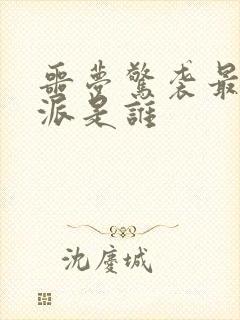 噩夢驚袭最
派是誰
沈慶城